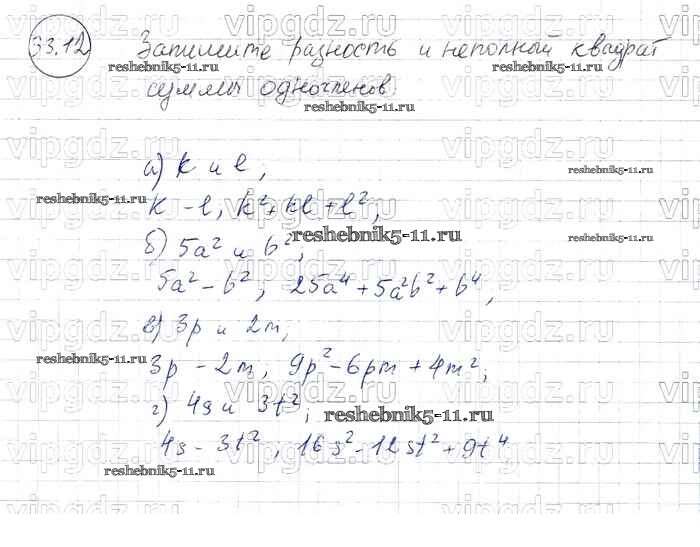 33.12 Запишите разность и неполный квадрат
суммы одночленов.
а) k и l;
k - l, k² + kl + l²;
б) 5a² и b²;
5a² - b²; 25a⁴ + 5a²b² + b⁴,
в) 3p и 2m;
3p - 2m; 9p² - 6pm + 4m²;
г) 4s и 3t²;
4s - 3t², 16s² - 12st² + 9t⁴
vipgdz.ru
reshebnik5-11.ru